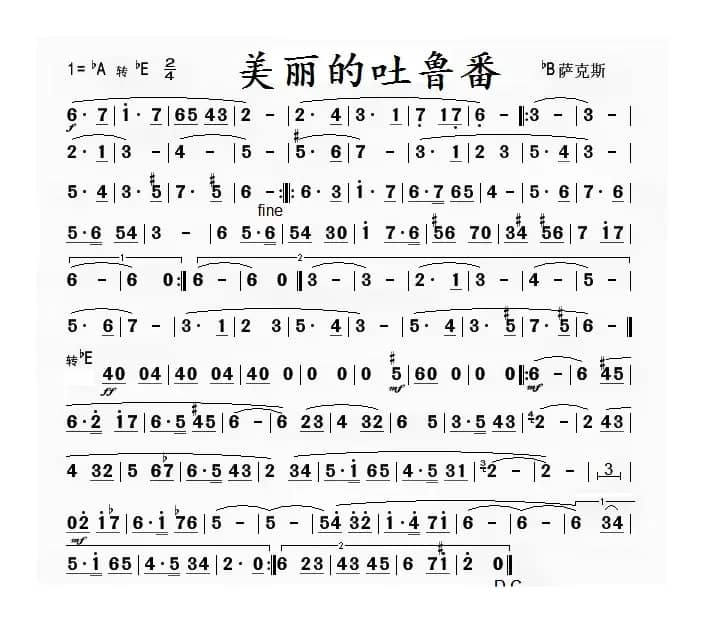 1=♭A 转 ♭E 2/4 美丽的吐鲁番 ♭B 萨克斯
6· 7|i· 7|65 43|2 -|2· 4|3· 1|7 17|6 -‖:3 -|3 -|
2· 1|3 -|4 -|5 -|#5· 6|7 -|3· 1|2 3|5· 4|3 -|
5· 4|3· #5|7· #5|6 -:‖:6· 3|i· 7|6·7 65|4 -|5· 6|7· 6|
fine
5·6 54|3 -|6 5·6|54 30|i 7·6|#56 70|3#4 #56|7 i7|
1 2
6 -|6 0:‖6 -|6 0‖3 -|3 -|2· 1|3 -|4 -|5 -|
5· 6|7 -|3· 1|2 3|5· 4|3 -|4 -|3· #5|7· #5|6 -‖
转♭E
40 04|40 04|40 0|0 0|0 #5|60 0|0 0‖:6 -|6 #45|
ff mf mf
6·2 i7|6·5 #45|6 -|6 23|4 32|6 5|3·5 43|2 -|2 43|
4 32|5 6♭7|6·5 43|2 34|5·i 65|4·5 31|2 -|2 -|3|
1
02 i♭7|6·i ♭76|5 -|5 -|54 32|i·4 71|6 -|6 -|6 34|
mf
2
5·i 65|4·5 34|2· 0:‖6 23|43 45|6 7#i|2 0‖